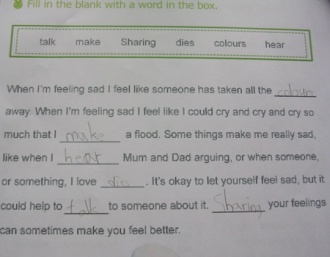 Fill in the blank with a word in the box.
talk make Sharing dies colours hear
When I'm feeling sad I feel like someone has taken all the colours
away. When I'm feeling sad I feel like I could cry and cry and cry so
much that I make a flood. Some things make me really sad,
like when I hear Mum and Dad arguing, or when someone,
or something, I love dies. It's okay to let yourself feel sad, but it
could help to talk to someone about it. Sharing your feelings
can sometimes make you feel better.